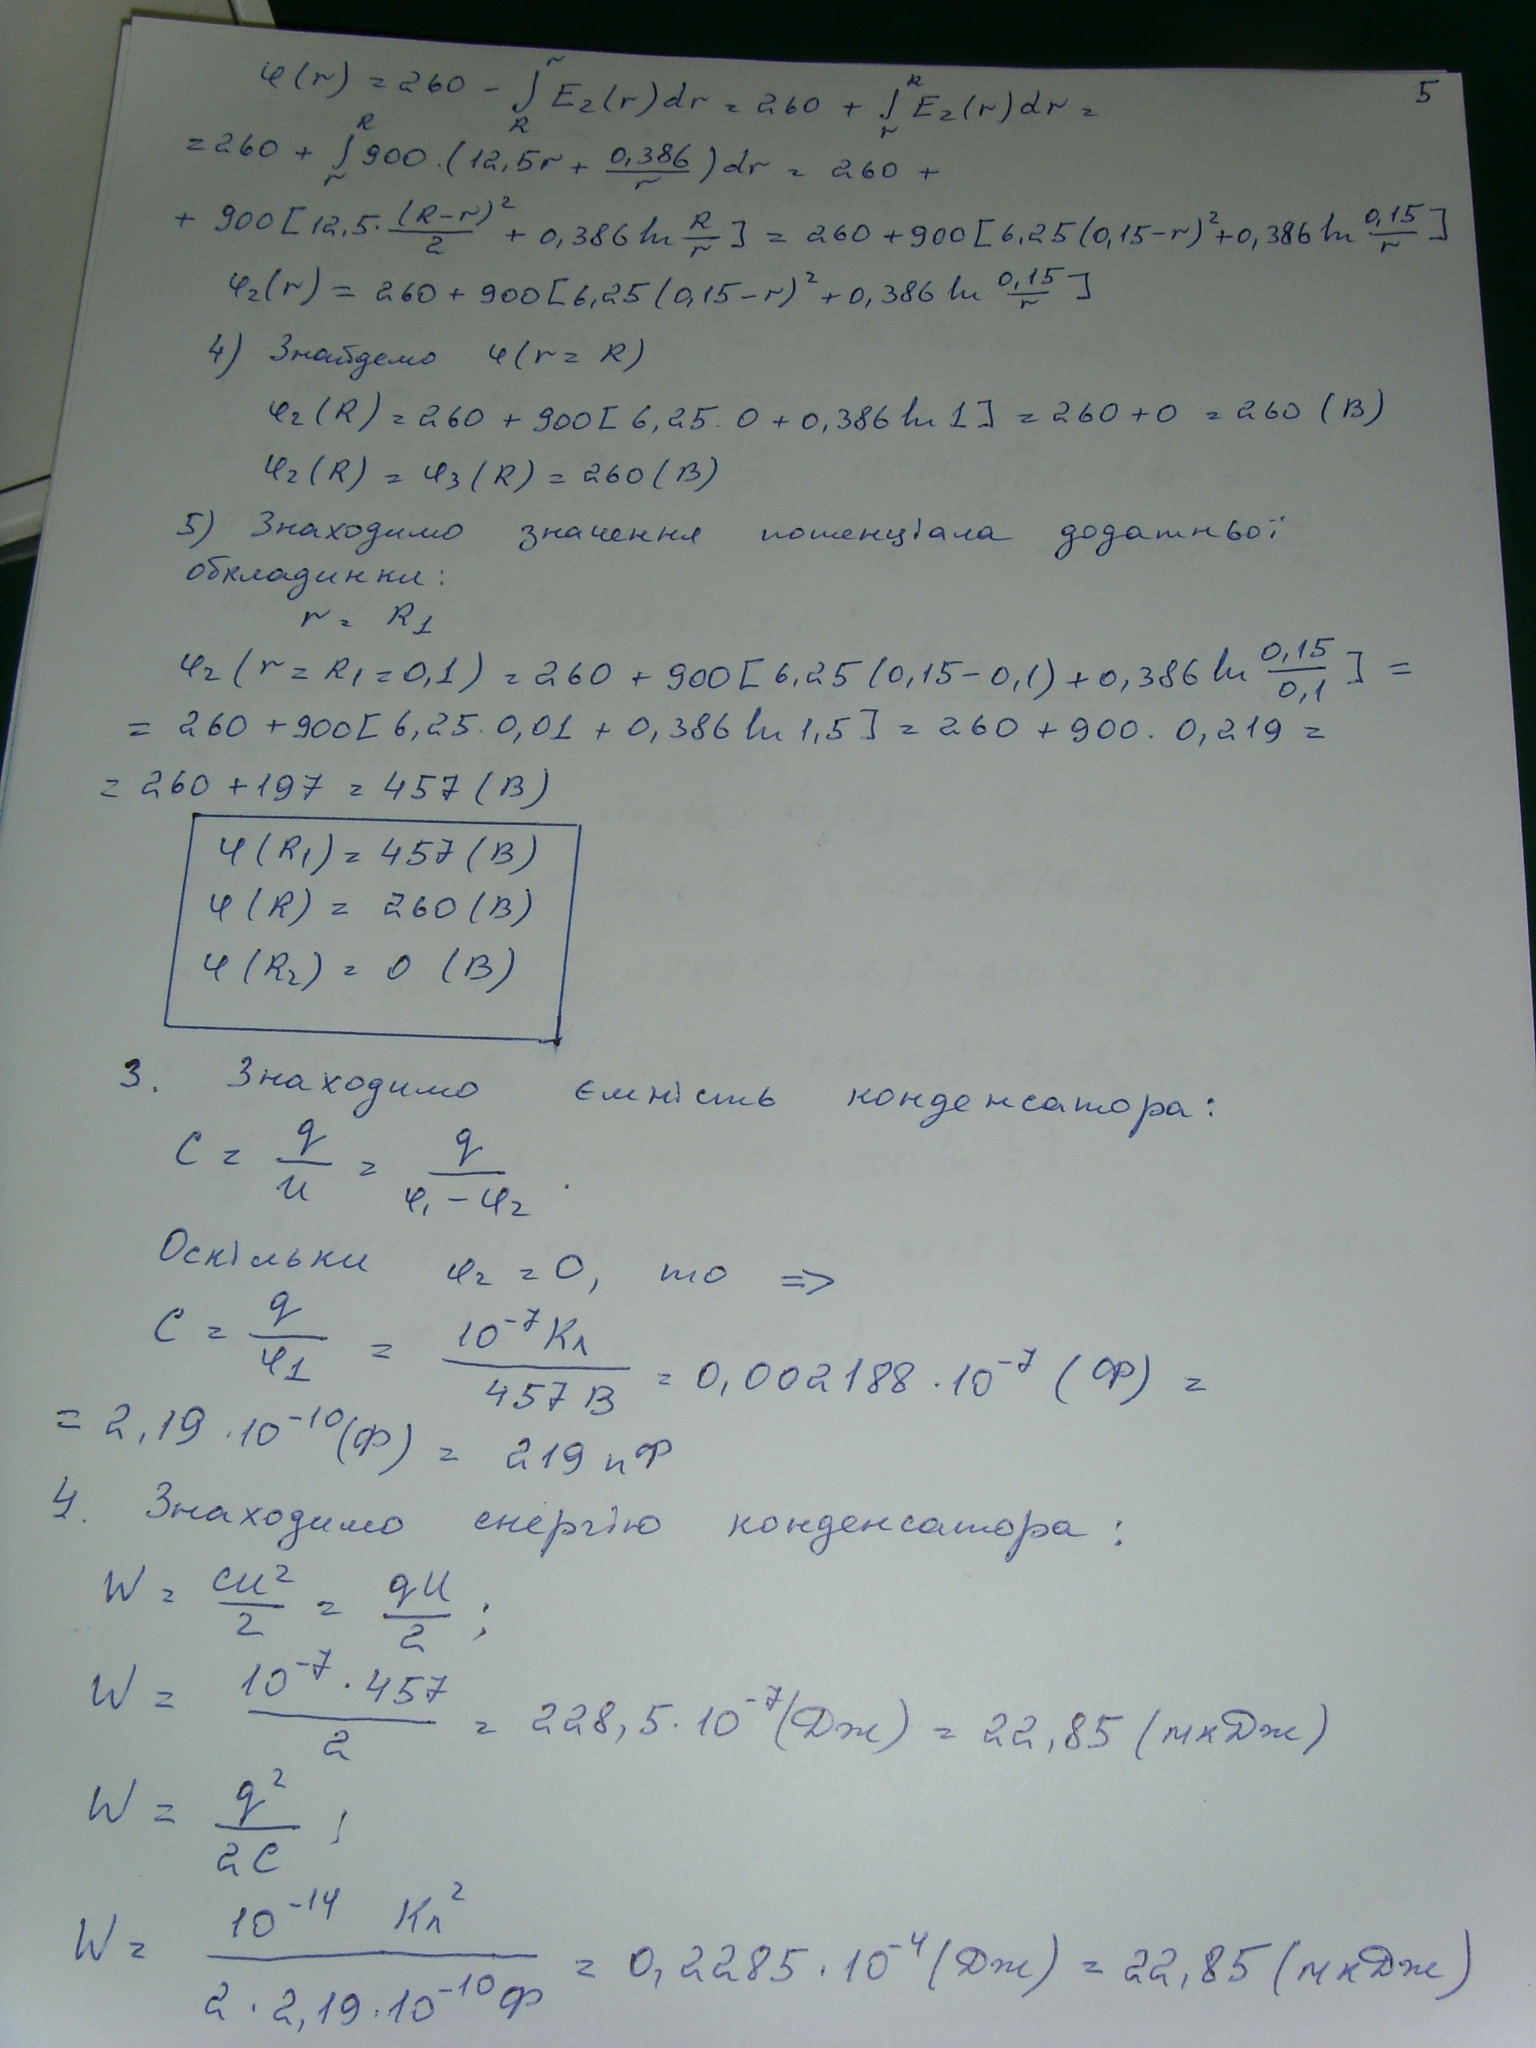 5
φ(r) = 260 - ∫_R^r E₂(r)dr = 260 + ∫_r^R E₂(r)dr =
= 260 + ∫_r^R 900·(12,5r + 0,386/r)dr = 260 +
+ 900[12,5·(R-r)²/2 + 0,386 ln R/r] = 260 + 900[6,25(0,15-r)² + 0,386 ln 0,15/r]
φ₂(r) = 260 + 900[6,25(0,15-r)² + 0,386 ln 0,15/r]
4) Знайдемо φ(r = R)
φ₂(R) = 260 + 900[6,25·0 + 0,386 ln 1] = 260 + 0 = 260 (В)
φ₂(R) = φ₃(R) = 260 (В)
5) Знаходимо значення потенціала додатньої
обкладинки:
r = R₁
φ₂(r = R₁ = 0,1) = 260 + 900[6,25(0,15-0,1) + 0,386 ln 0,15/0,1] =
= 260 + 900[6,25·0,01 + 0,386 ln 1,5] = 260 + 900·0,219 =
= 260 + 197 = 457 (В)
φ(R₁) = 457 (В)
φ(R) = 260 (В)
φ(R₂) = 0 (В)
3. Знаходимо ємність конденсатора:
C = q/U = q/(φ₁ - φ₂).
Оскільки φ₂ = 0, то =>
C = q/φ₁ = 10⁻⁷ Кл/457 В = 0,002188·10⁻⁷ (Ф) =
= 2,19·10⁻¹⁰ (Ф) = 219 пФ
4. Знаходимо енергію конденсатора:
W = CU²/2 = qU/2;
W = 10⁻⁷·457/2 = 228,5·10⁻⁷ (Дж) = 22,85 (мкДж)
W = q²/2C;
W = 10⁻¹⁴ Кл²/2·2,19·10⁻¹⁰ Ф = 0,2285·10⁻⁴ (Дж) = 22,85 (мкДж)